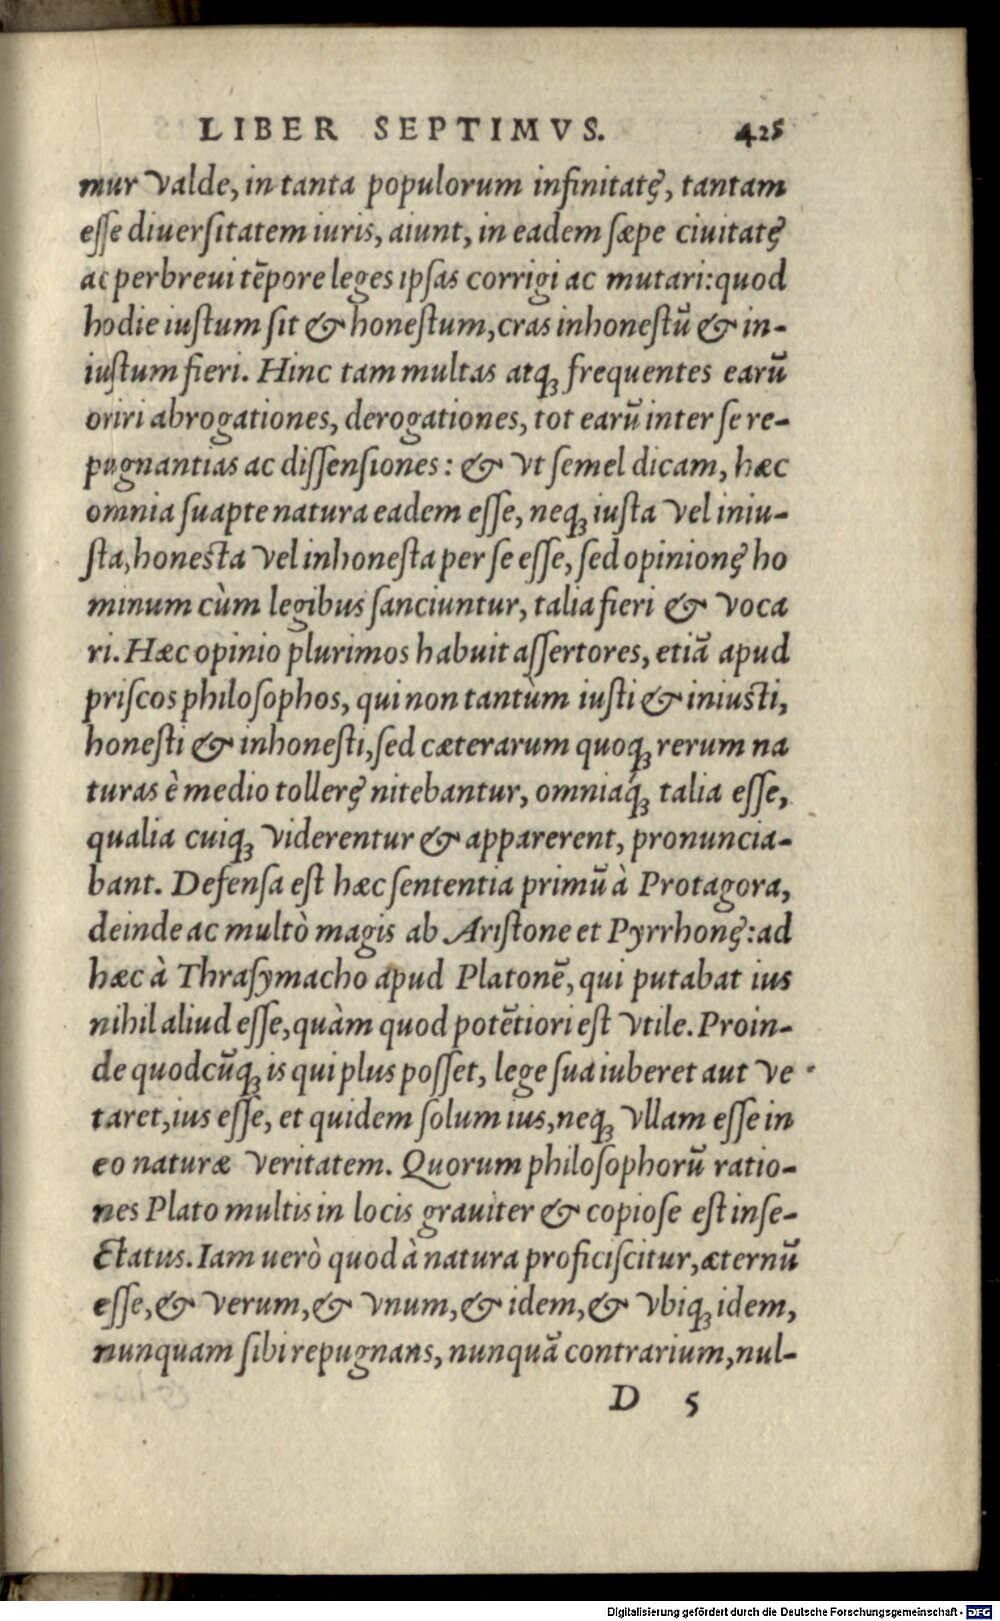 LIBER SEPTIMVS. 425
mur valde, in tanta populorum infinitatę, tantam
esse diuersitatem iuris, aiunt, in eadem sæpe ciuitatę
ac perbreui tẽpore leges ipsas corrigi ac mutari: quod
hodie iustum sit & honestum, cras inhonestũ & in-
iustum fieri. Hinc tam multas atq; frequentes earũ
oriri abrogationes, derogationes, tot earũ inter se re-
pugnantias ac dissensiones: & vt semel dicam, hæc
omnia suapte natura eadem esse, neq; iusta vel iniu-
sta, honesta vel inhonesta per se esse, sed opinionę ho
minum cùm legibus sanciuntur, talia fieri & voca
ri. Hæc opinio plurimos habuit assertores, etiã apud
priscos philosophos, qui non tantùm iusti & iniusti,
honesti & inhonesti, sed cæterarum quoq; rerum na
turas è medio tollerę nitebantur, omniaq́; talia esse,
qualia cuiq; viderentur & apparerent, pronuncia-
bant. Defensa est hæc sententia primũ à Protagora,
deinde ac multò magis ab Aristone et Pyrrhonę: ad
hæc à Thrasymacho apud Platonẽ, qui putabat ius
nihil aliud esse, quàm quod potẽtiori est vtile. Proin-
de quodcũq; is qui plus posset, lege sua iuberet aut ve
taret, ius esse, et quidem solum ius, neq; vllam esse in
eo naturæ veritatem. Quorum philosophorũ ratio-
nes Plato multis in locis grauiter & copiose est inse-
ctatus. Iam uerò quod à natura proficiscitur, æternũ
esse, & verum, & vnum, & idem, & vbiq; idem,
nunquam sibi repugnans, nunquã contrarium, nul-
D 5
Digitalisierung gefördert durch die Deutsche Forschungsgemeinschaft - DFG